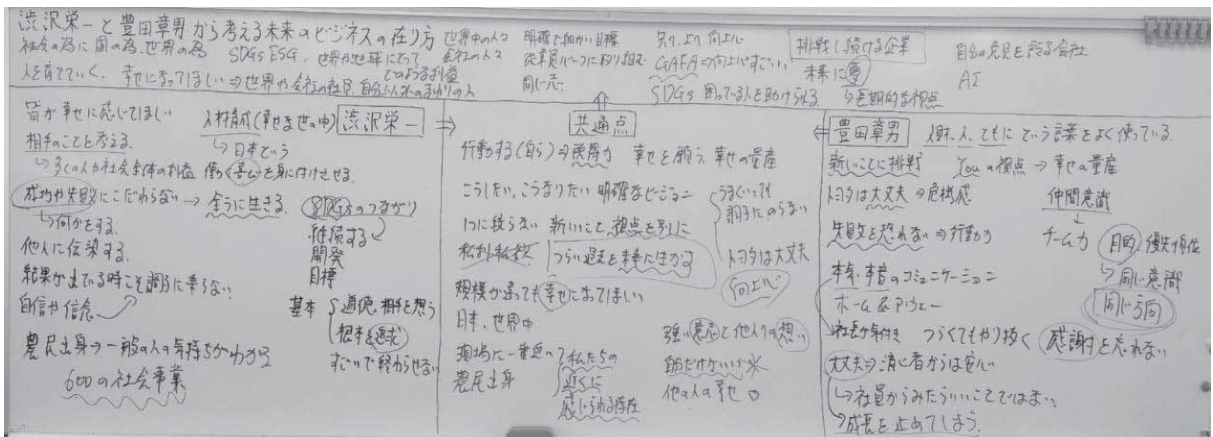 渋沢栄一と豊田章男から考える未来のビジネスの在り方
社会の為に国の為、世界の為 SDGs ESG、世界が地球にとって
どのような利益
人を育てていく、幸せになってほしい⇒世界や会社の社員、自分や人のまわりの人
世界中の人々
会社の人々
明確で細かい目標
従業員一人一人に
同じ志
向上心
GAFA⇒向上心すごい
SDGs 困っている人を助けられる
挑戦し続ける企業
未来に夢
↳長期的な視点
会社
AI
皆が幸せに感じてほしい
相手のことを考える。
↳多くの人が社会全体の利益
成功や失敗にこだわらない→
↳何かをする。
他人に伝染する。
結果が出ている時こそ調子に乗らない
自信や信念
農民出身→一般の人の気持ちがわかる
600の社会事業
人材育成(幸せな世の中)
↳日本という
を身に付けさせる。
に生きる。
SDGsのつながり
継続する
開発
目標
基本
道徳、相手を想う
根本を追求
すごいで終わらせない
渋沢栄一
⇒
共通点
行動する(自ら)⇒ 幸せを願う、幸せの量産
こうしたい、こうなりたい 明確なビジョン
1つに絞らない 新しいこと、視点を別に
私利私欲
つらい過去を未来に生かす
うまくいっても
調子にのらない
トヨタは大丈夫
向上心
規模が違っても幸せになってほしい
日本、世界中
現場に一番近い
農民出身
私たちの
近くに
感じられる存在
強い意志と他人への想い
自分だけがいい ×
他の人の幸せ ○
⇐
豊田章男
人、ともにという言葉をよく使っている。
新しいことに挑戦 Youの視点⇒幸せの量産
トヨタは大丈夫⇒危機感
失敗を恐れない⇒行動力
仲間意識
チーム力
目的、優先順位
↳同じ意識
同じ方向
本気・本音のコミュニケーション
ホーム&アウェー
つらくてもやり抜く
感謝を忘れない
大丈夫⇒消費者からは安心
↳社員からみたらいいことではない。
↳成長を止めてしまう。